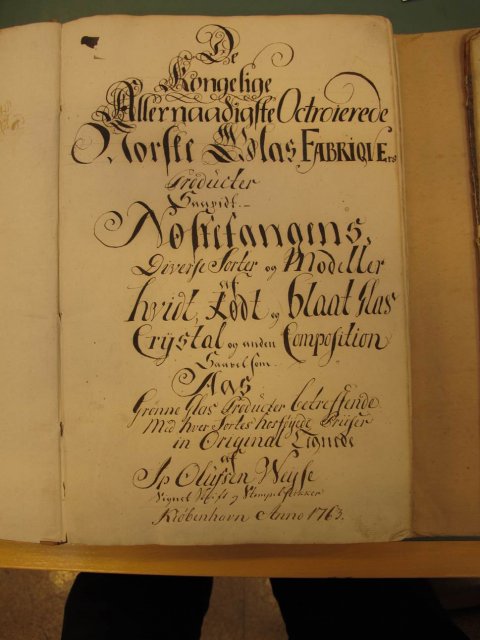 De
Kongelige
Allernaadigste Octroierede
Norske Glas FABRIQUErs
Producter
Saavidt.
Nöstetangens,
Diverse Sorter og Modeller
af
hvidt, Rödt og blaat Glas
Crÿstal og anden Composition
Saavelsom.
Aas
Grönne Glas Producter betreffende
Med hver Sortes hosföyede Priiser
in Original Tegnede
af
Ip Olüfsen Weyse
Signet og Stempelstikker
Kiöbenhavn Anno 1763.